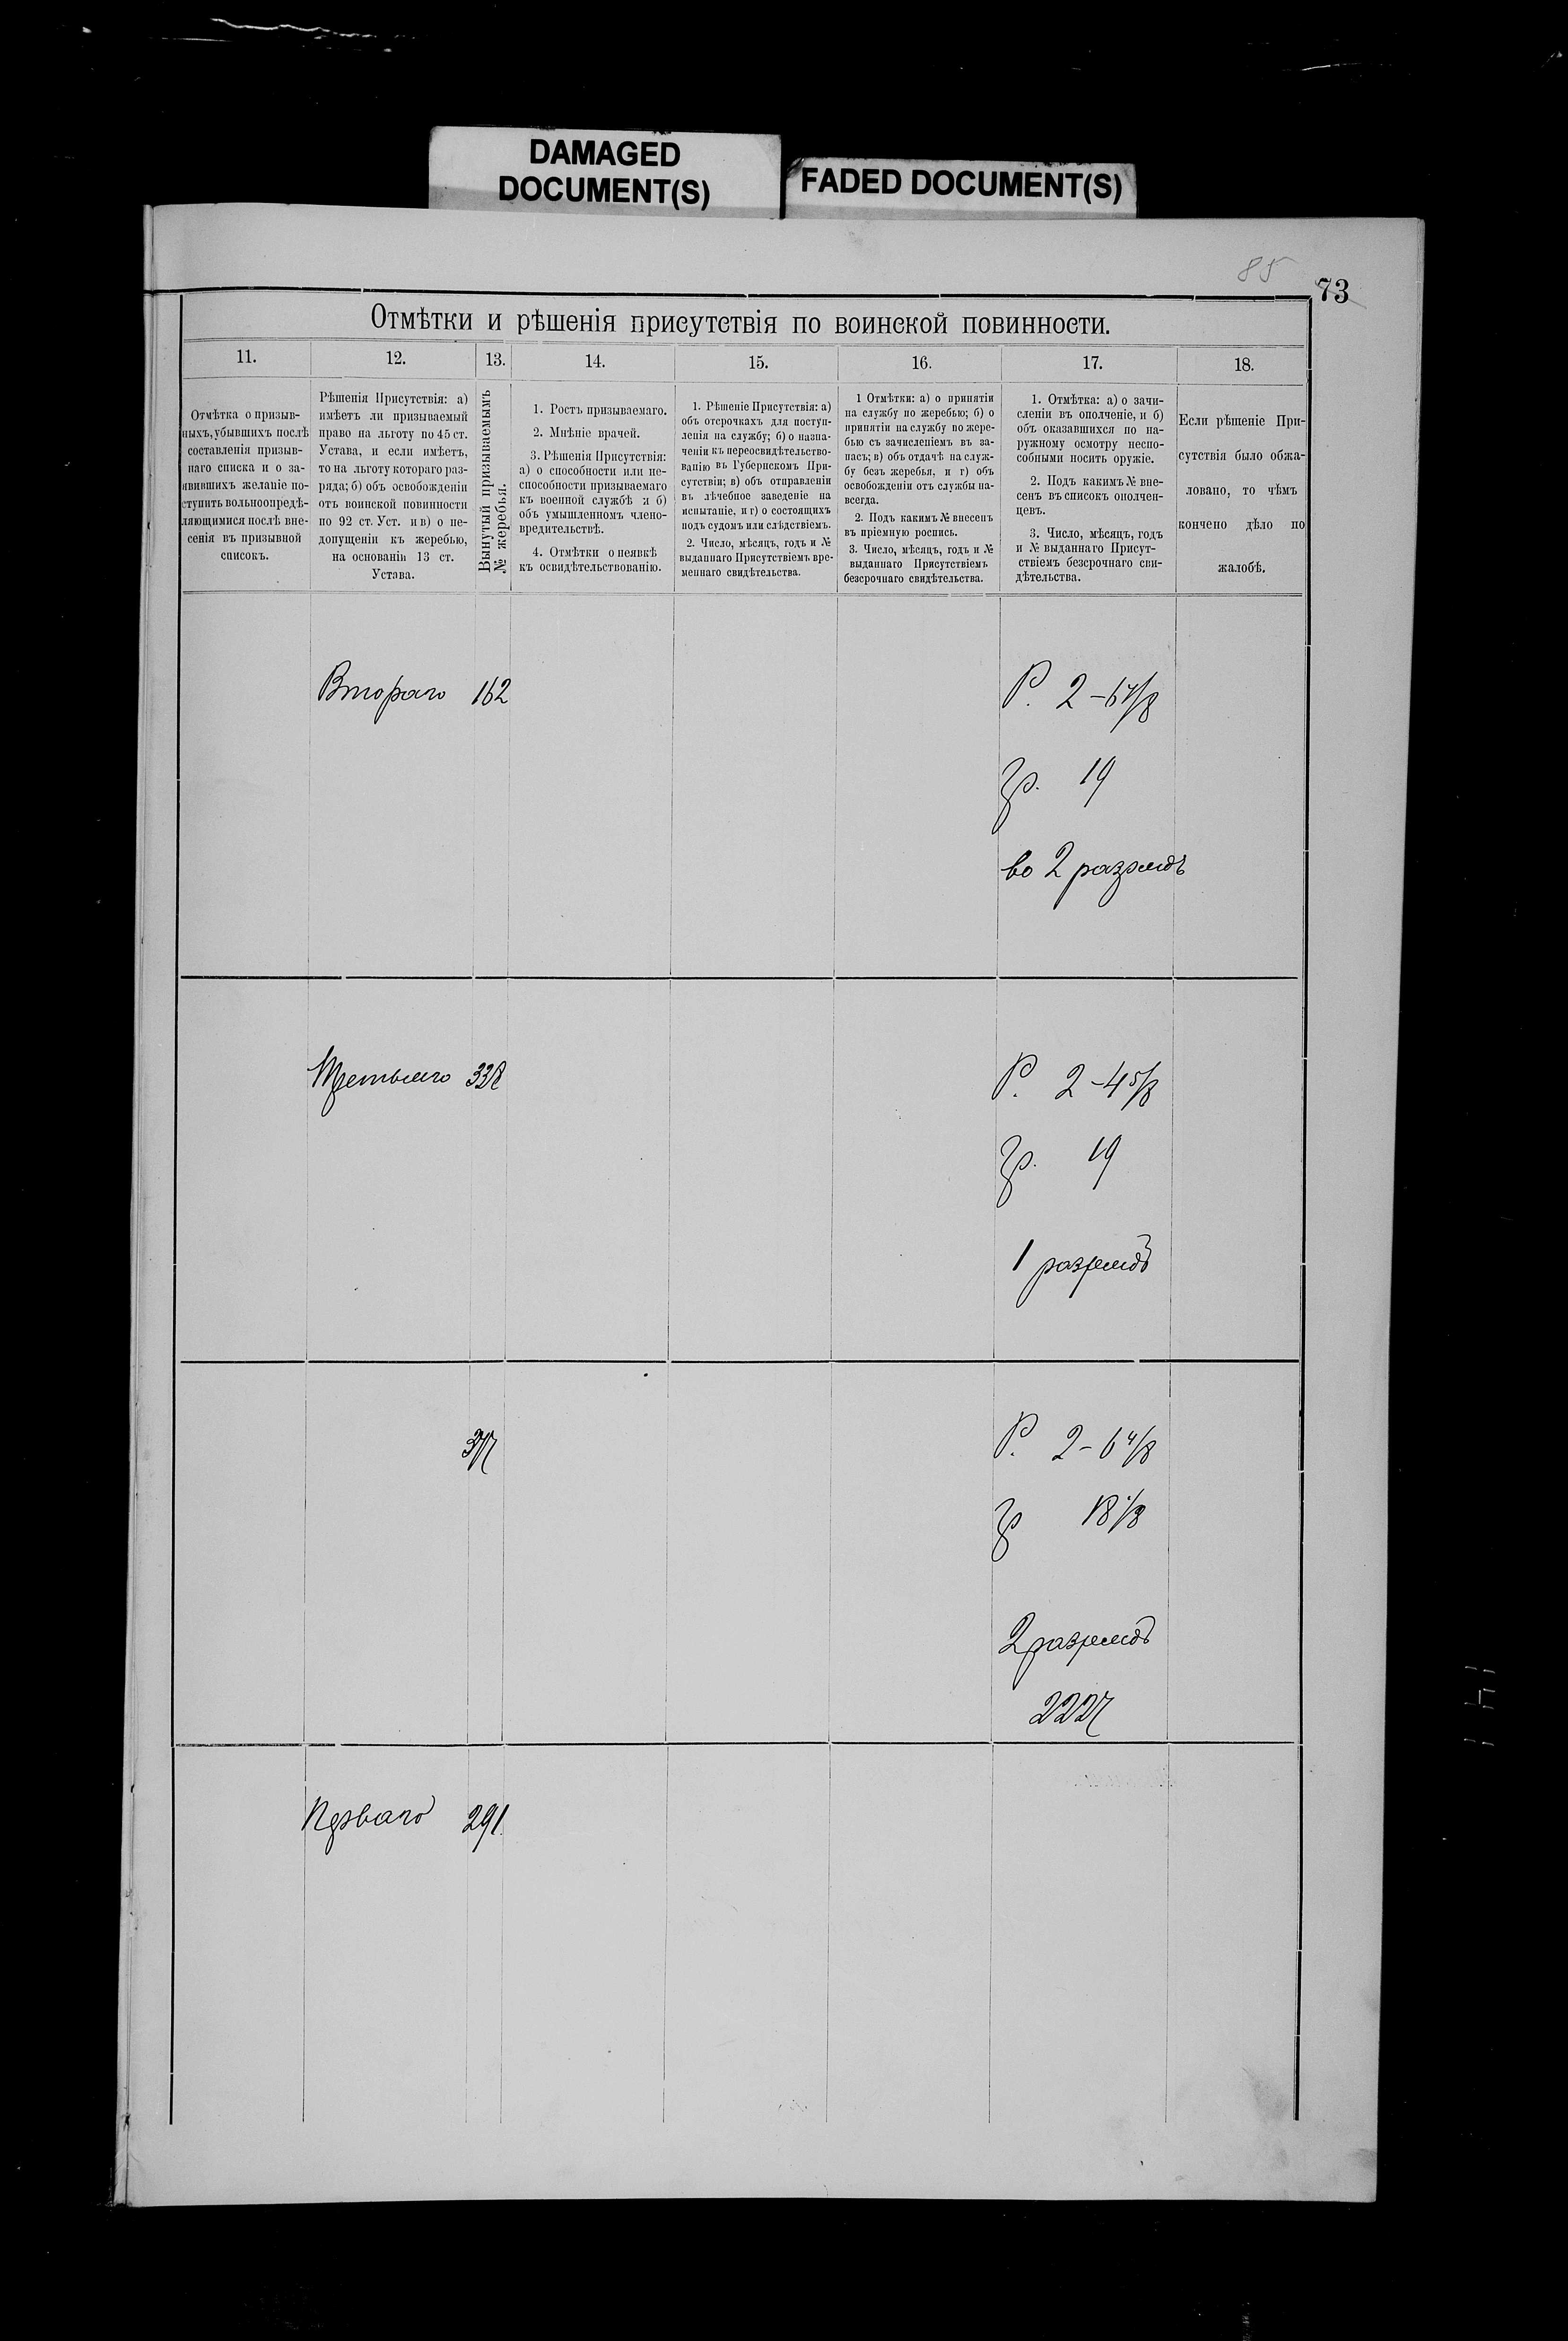 DAMAGED
DOCUMENT(S)
FADED DOCUMENT(S)
85
73
Отмѣтки и рѣшенія присутствія по воинской повинности.
11.
12.
13.
14.
15.
16.
17.
18.
Отмѣтка о призыв-
ныхъ, убывшихъ послѣ
составленія призыв-
наго списка и о за-
явившихъ желаніе по-
ступить вольноопредѣ-
ляющимися послѣ вне-
сенія въ призывной
списокъ.
Рѣшенія Присутствія: а)
имѣетъ ли призываемый
право на льготу по 45 ст.
Устава, и если имѣетъ,
то на льготу котораго раз-
ряда; б) объ освобожденіи
отъ воинской повинности
по 92 ст. Уст. и в) о не-
допущеніи къ жеребью,
на основаніи 13 ст.
Устава.
Вынутый призываемымъ
№ жеребья.
1. Ростъ призываемаго.
2. Мнѣніе врачей.
3. Рѣшенія Присутствія:
а) о способности или не-
способности призываемаго
къ военной службѣ и б)
объ умышленномъ члено-
вредительствѣ.
4. Отмѣтки о неявкѣ
къ освидѣтельствованію.
1. Рѣшеніе Присутствія: а)
объ отсрочкахъ для поступ-
ленія на службу; б) о назна-
ченіи къ переосвидѣтельство-
ванію въ Губернскомъ При-
сутствіи; в) объ отправленіи
въ лѣчебное заведеніе на
испытаніе, и г) о состоящихъ
подъ судомъ или слѣдствіемъ.
2. Число, мѣсяцъ, годъ и №
выданнаго Присутствіемъ вре-
меннаго свидѣтельства.
1 Отмѣтки: а) о принятіи
на службу по жеребью; б) о
принятіи на службу по жере-
бью съ зачисленіемъ въ за-
пасъ; в) объ отдачѣ на служ-
бу безъ жеребья, и г) объ
освобожденіи отъ службы на-
всегда.
2. Подъ какимъ № внесенъ
въ пріемную роспись.
3. Число, мѣсяцъ, годъ и №
выданнаго Присутствіемъ
безсрочнаго свидѣтельства.
1. Отмѣтка: а) о зачи-
сленіи въ ополченіе, и б)
объ оказавшихся по на-
ружному осмотру неспо-
собными носить оружіе.
2. Подъ какимъ № вне-
сенъ въ списокъ ополчен-
цевъ.
3. Число, мѣсяцъ, годъ
и № выданнаго Присут-
ствіемъ безсрочнаго сви-
дѣтельства.
Если рѣшеніе При-
сутствія было обжа-
ловано, то чѣмъ
кончено дѣло по
жалобѣ.
Втораго 162
Р. 2-6 4/8
гр. 19
во 2 разрядъ
Третьяго 328
Р. 2-4 5/8
гр. 19
1 разрядъ
317
Р. 2-6 4/8
гр 18 1/8
2 разрядъ
2227
Перваго 291